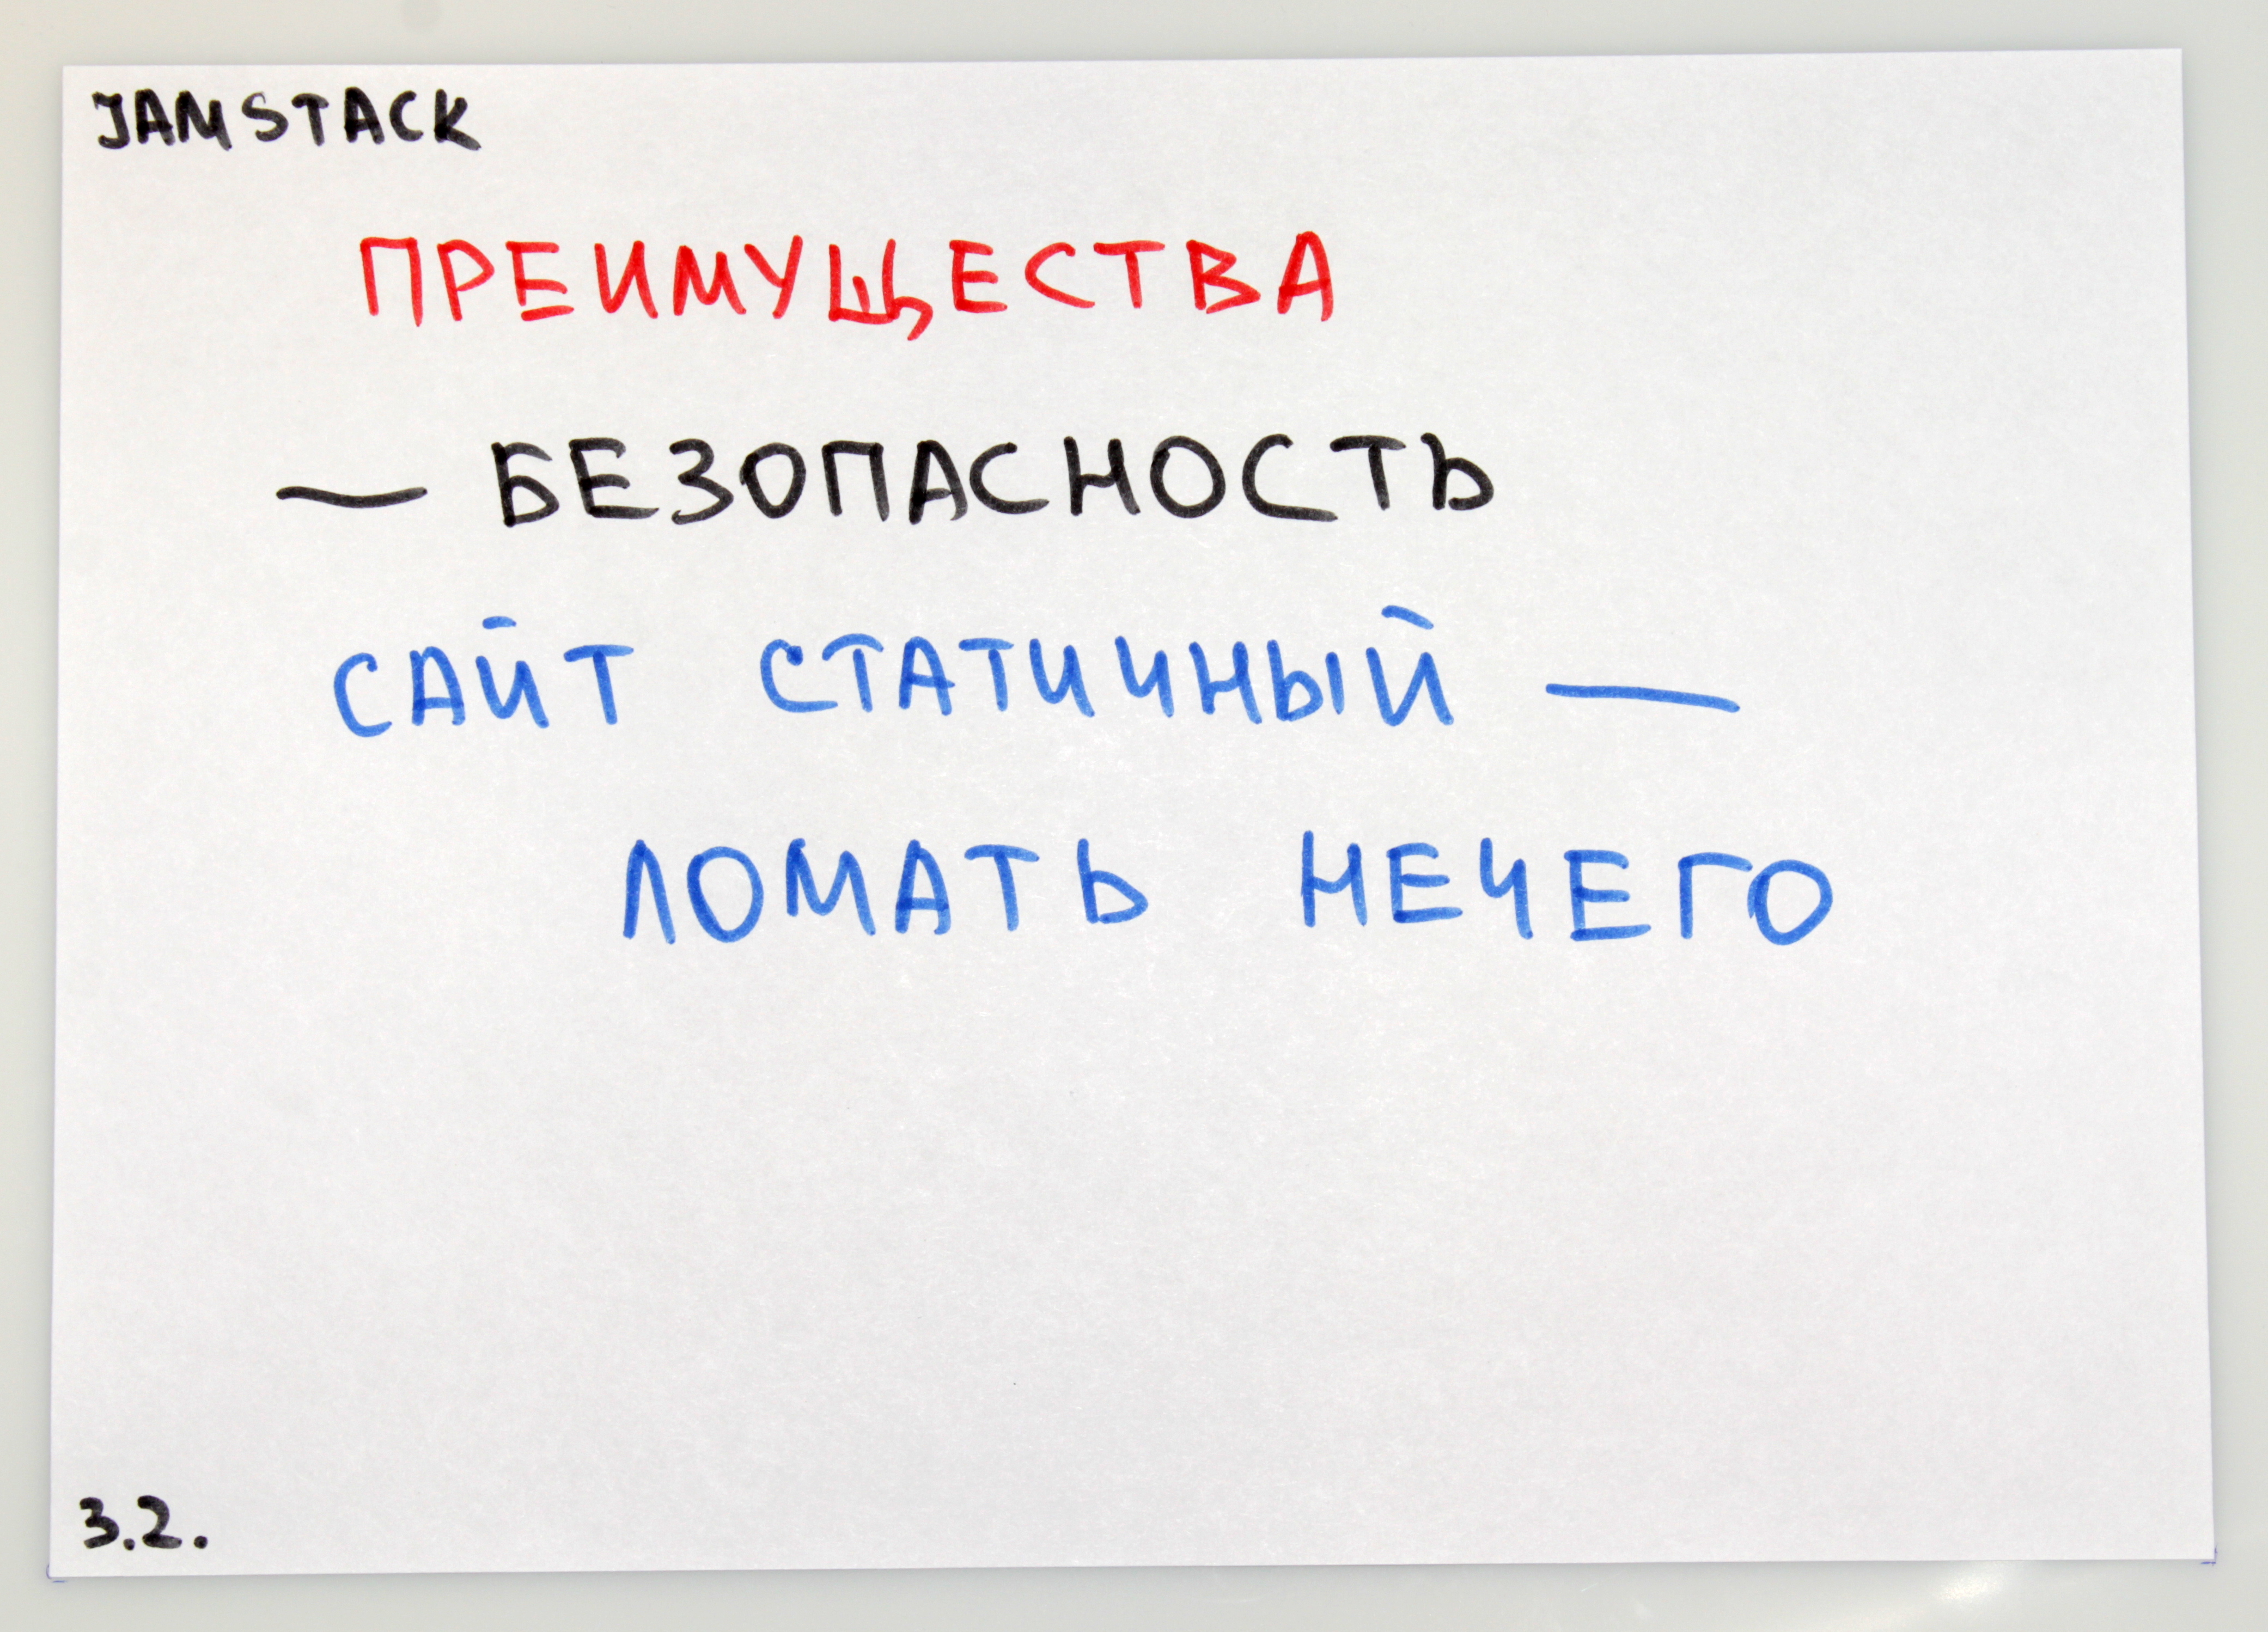 JAMSTACK
ПРЕИМУЩЕСТВА
— БЕЗОПАСНОСТЬ
САЙТ СТАТИЧНЫЙ —
ЛОМАТЬ НЕЧЕГО
3.2.